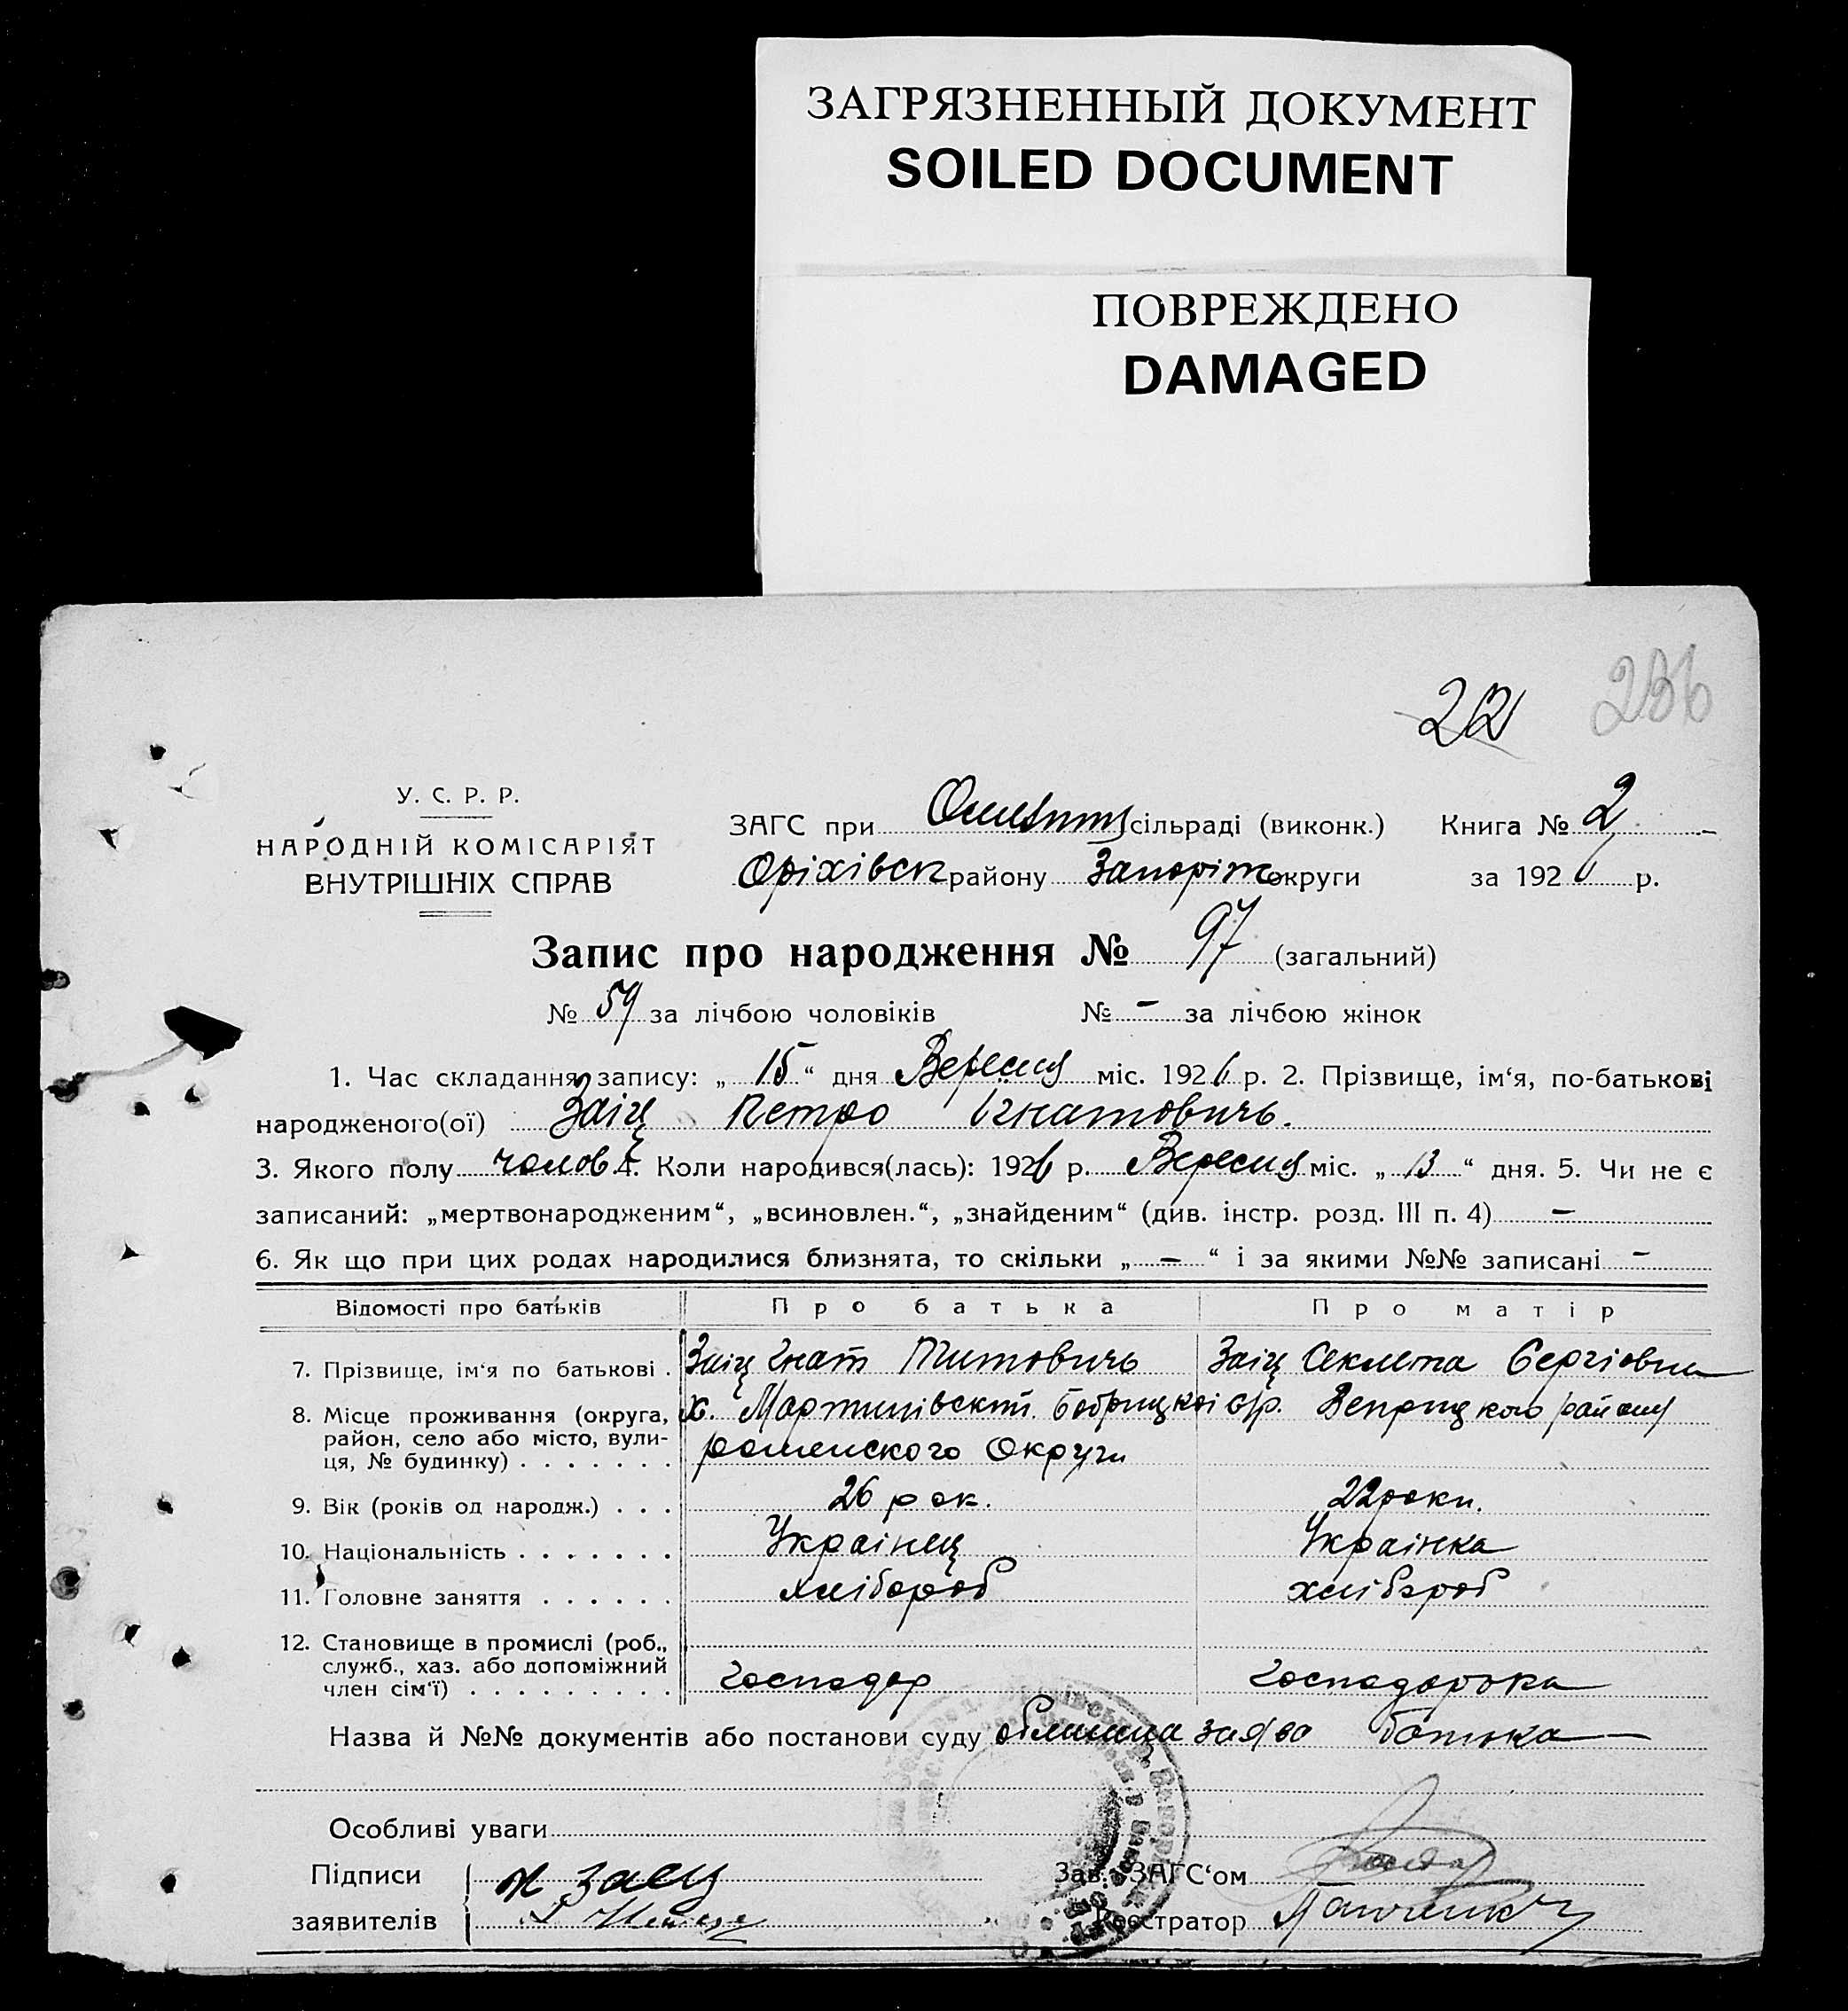 ЗАГРЯЗНЕННЫЙ ДОКУМЕНТ
SOILED DOCUMENT
ПОВРЕЖДЕНО
DAMAGED
22
236
У. С. Р. Р.
НАРОДНІЙ КОМІСАРІЯТ
ВНУТРІШНІХ СПРАВ
ЗАГС при сільраді (виконк.) Книга № 2
Оріхівск району Запоріж округи за 1926 р.
Запис про народження № 97 (загальний)
№ 59 за лічбою чоловіків № – за лічбою жінок
1. Час складання запису: „ 15 “ дня Вересня міс. 1926 р. 2. Прізвище, ім‘я, по-батькові
народженого(ої) Заіц Петро Ігнатовичь.
3. Якого полу чолов 4. Коли народився(лась): 1926 р. Вересня міс. „ 13 “ дня. 5. Чи не є
записаний: „мертвонародженим“, „всиновлен.“, „знайденим“ (див. інстр. розд. III п. 4) –
6. Як що при цих родах народилися близнята, то скільки „ – “ і за якими №№ записані –
Відомості про батьків Про батька Про матір
7. Прізвище, ім‘я по батькові . Заіц Гнат Титовичь Заіц Секлета Сергіовна
8. Місце проживання (округа, район, село або місто, вулиця, № будинку) х. Мартинівский Бобрицкоі с/р. Веприцкого району
роменского Округи
9. Вік (років од народж.) . . . 26 рок. 22 роки.
10. Національність . . . . . . . Украінец Украінка
11. Головне заняття . . . . . . хлібороб хлібороб
12. Становище в промислі (роб., служб., хаз. або допоміжний член сім‘ї) . . . . . . . . . господар господорка
Назва й №№ документів або постанови суду заява батька
Особливі уваги
Підписи заец Зав. ЗАГС‘ом
заявителів Реєстратор